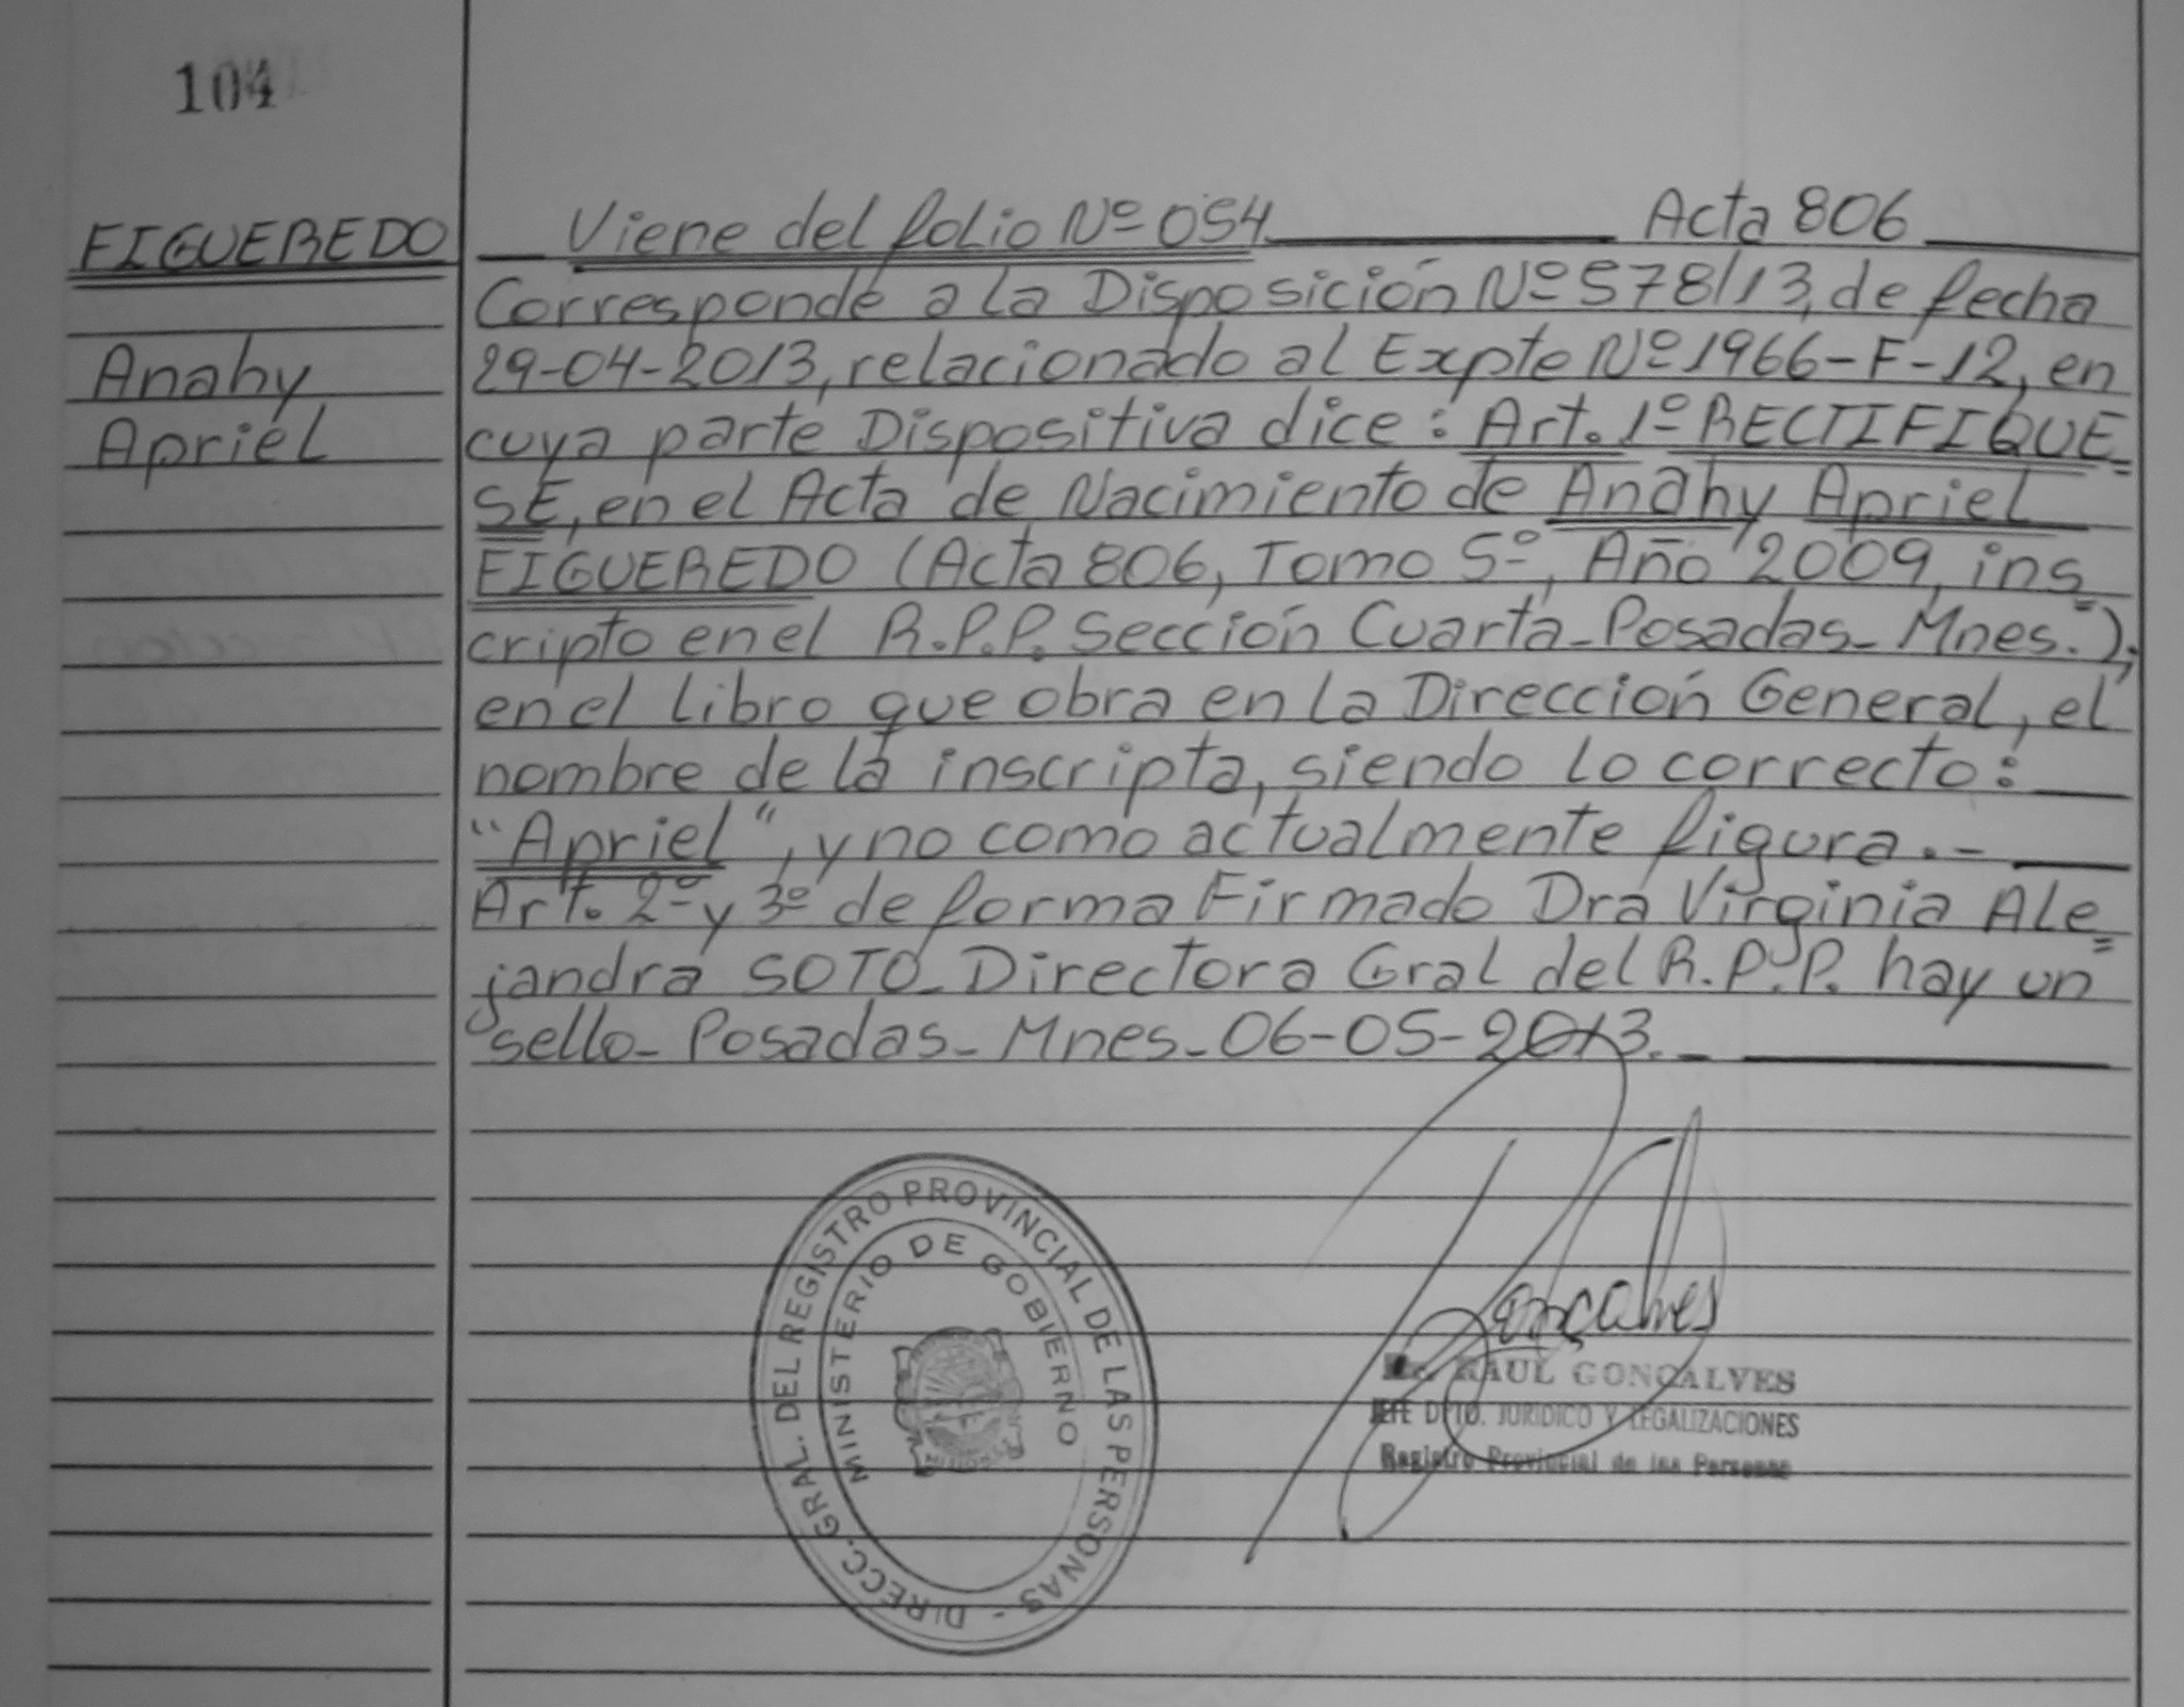 104
FIGUEREDO
Anahy
Apriel
Viene del folio Nº 054 Acta 806
Corresponde a la Disposición Nº 578/13, de fecha
29-04-2013, relacionado al Expte Nº 1966-F-12, en
cuya parte Dispositiva dice: Art. 1º RECTIFIQUE=
SE, en el Acta de Nacimiento de Anahy Apriel
FIGUEREDO (Acta 806, Tomo 5º, Año 2009, ins=
cripto en el R.P.P. Sección Cuarta-Posadas-Mnes.);
en el libro que obra en la Dirección General, el
nombre de la inscripta, siendo lo correcto:
"Apriel", y no como actualmente figura.-
Art. 2º y 3º de forma Firmado Dra Virginia Ale=
jandra SOTO-Directora Gral del R.P.P. hay un
sello-Posadas-Mnes-06-05-2013.-
DIRECC. GRAL. DEL REGISTRO PROVINCIAL DE LAS PERSONAS -
MINISTERIO DE GOBIERNO
Gonçalves
RAUL GONÇALVES
JEFE DPTO. JURIDICO Y LEGALIZACIONES
Registro Provincial de las Personas